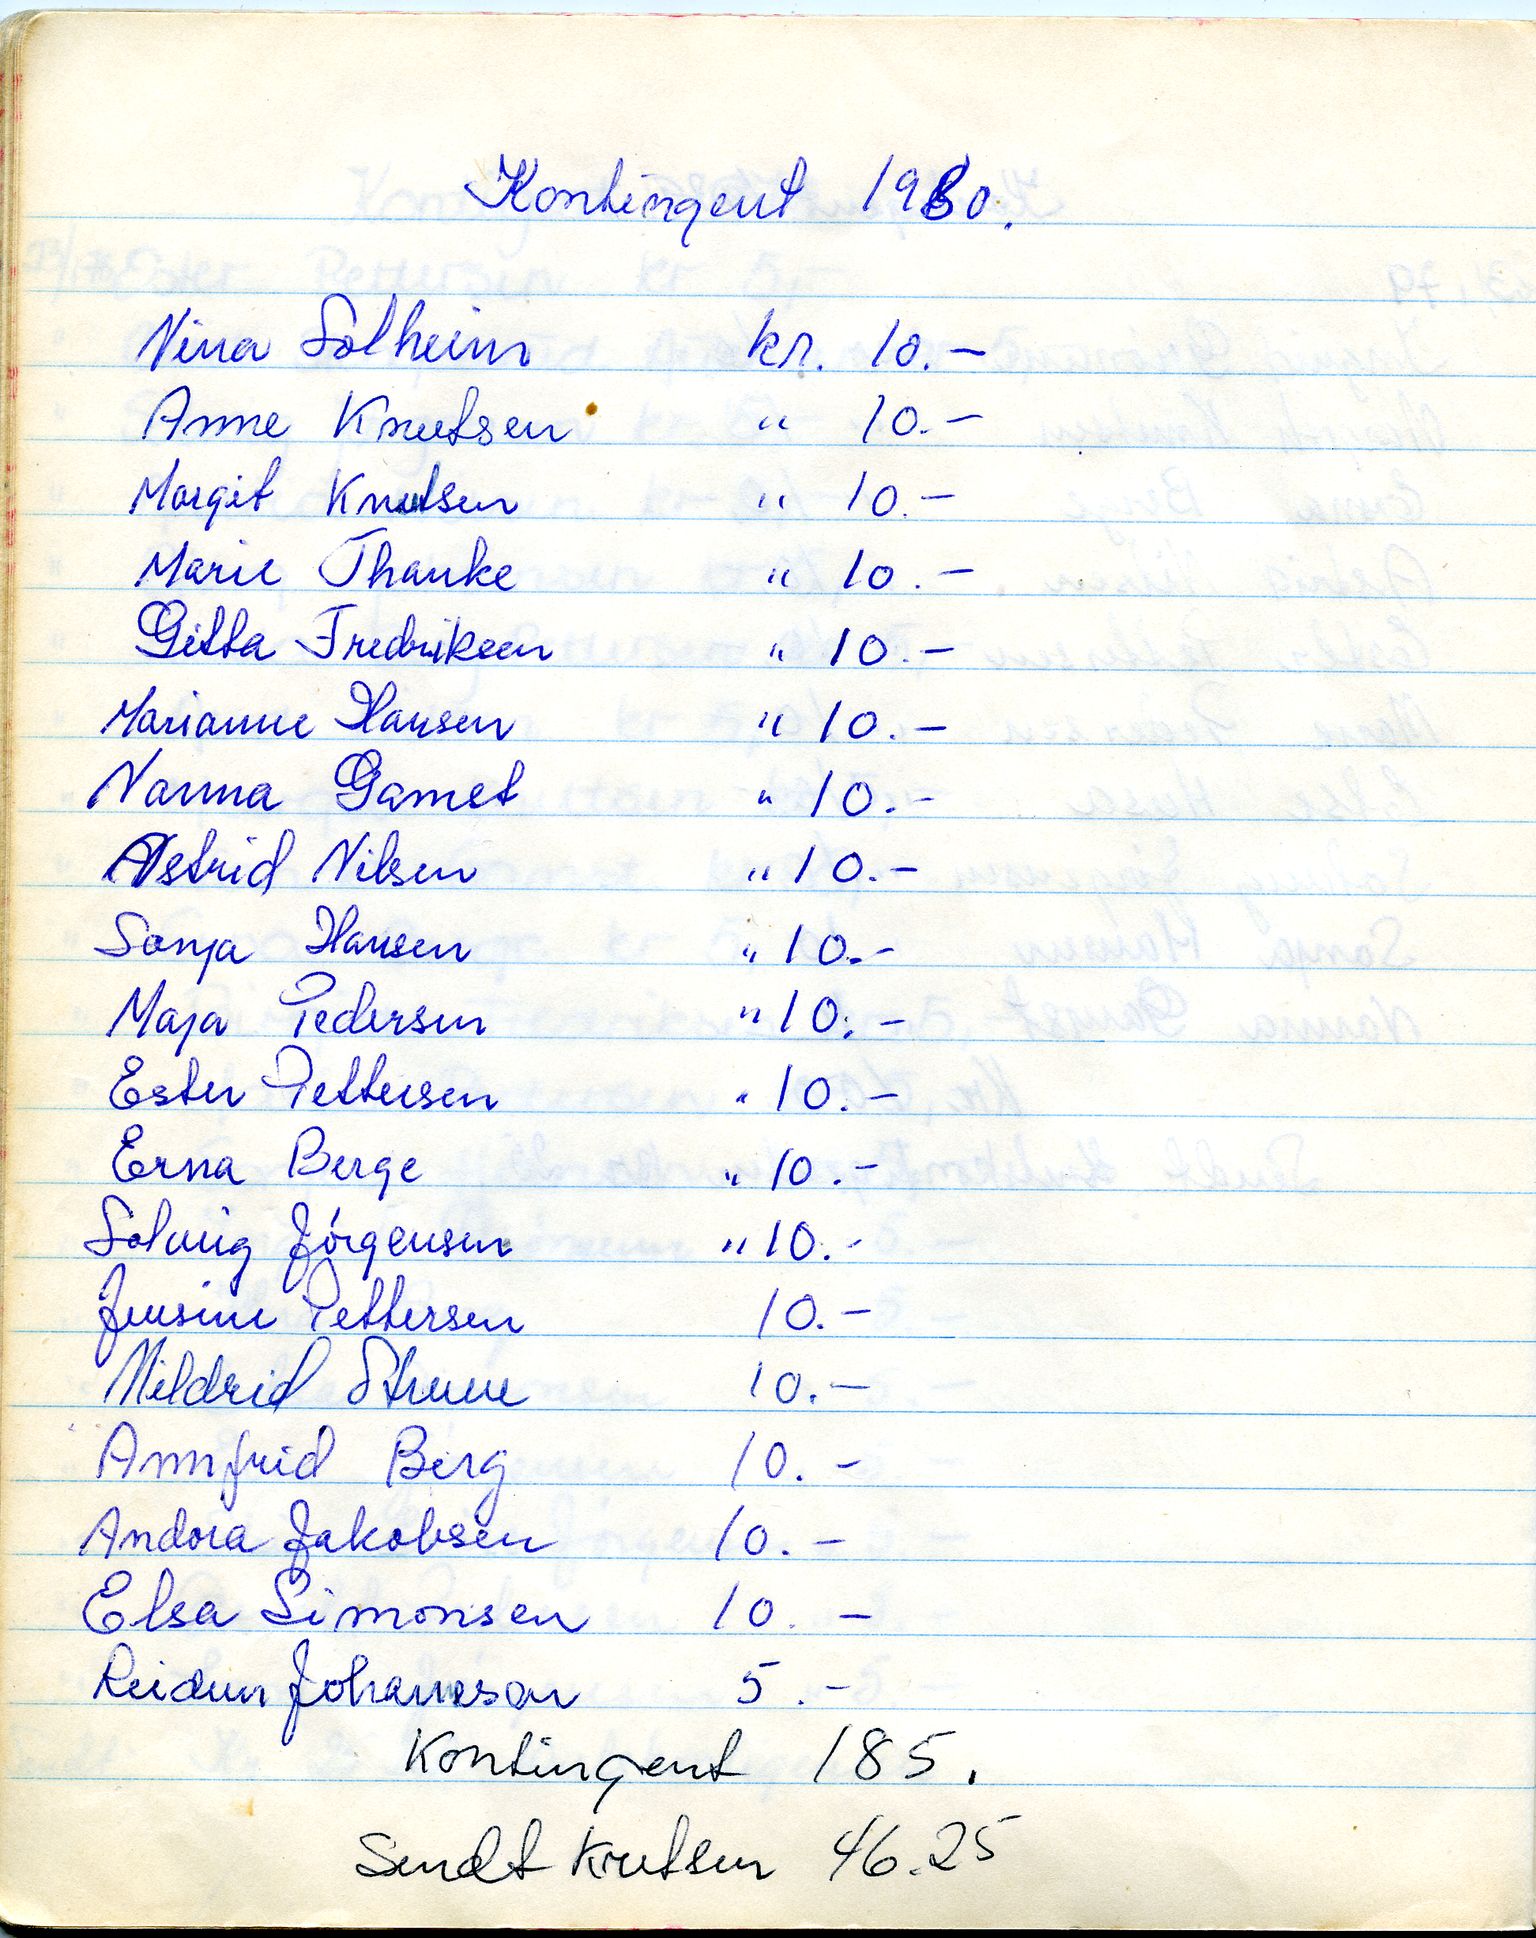 Kontingent 1980.
Nina Solheim kr. 10.-
Anne Knutsen " 10.-
Margit Knutsen " 10.-
Marie Thanke " 10.-
Gitta Fredriksen " 10.-
Marianne Hansen " 10.-
Nanna Gamst " 10.-
Astrid Nilsen " 10.-
Sonja Hansen " 10.-
Maja Pedersen " 10.-
Ester Pettersen " 10.-
Erna Berge " 10.-
Solveig Jörgensen " 10.-
Jensine Pettersen 10.-
Mildrid 10.-
Annfrid Berg 10.-
Andora Jakobsen 10.-
Elsa Simonsen 10.-
Reidun Johanneson 5.-
Kontingent 185.
Sendt Knutsen 46.25